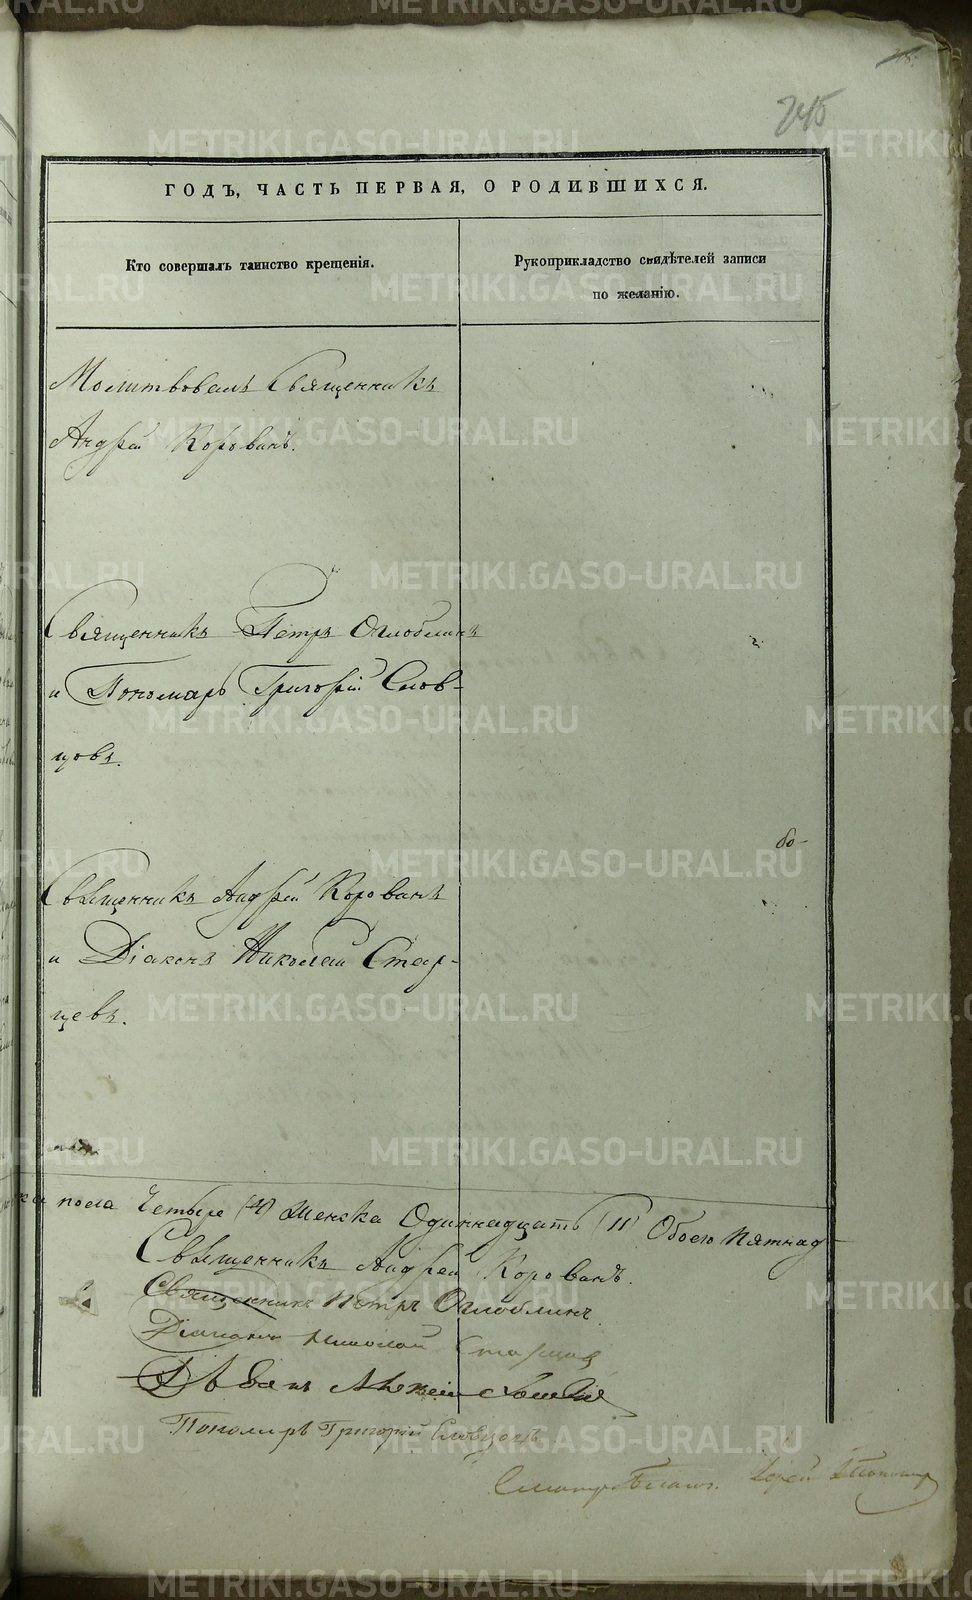 245
ГОДЪ, ЧАСТЬ ПЕРВАЯ, О РОДИВШИХСЯ.
Кто совершалъ таинство крещенія.
Рукоприкладство свидѣтелей записи
по желанію.
Молитвовалъ Священникъ
Андрей Корованъ.
Священникъ Петръ Оглоблинъ
и Пономарь Григорій Слов-
цовъ.
Священникъ Андрей Корованъ
и Діаконъ Николай Стар-
цевъ.
бо-
пола Четыре (4) Женска Одиннадцать (11) Обоего Пятнад-
Священникъ Андрей Корованъ.
Священникъ Петръ Оглоблинъ.
Діаконъ Николай Старцевъ
Дьячекъ Алексѣй
Пономарь Григорій Словцовъ
Іерей
METRIKI.GASO-URAL.RU